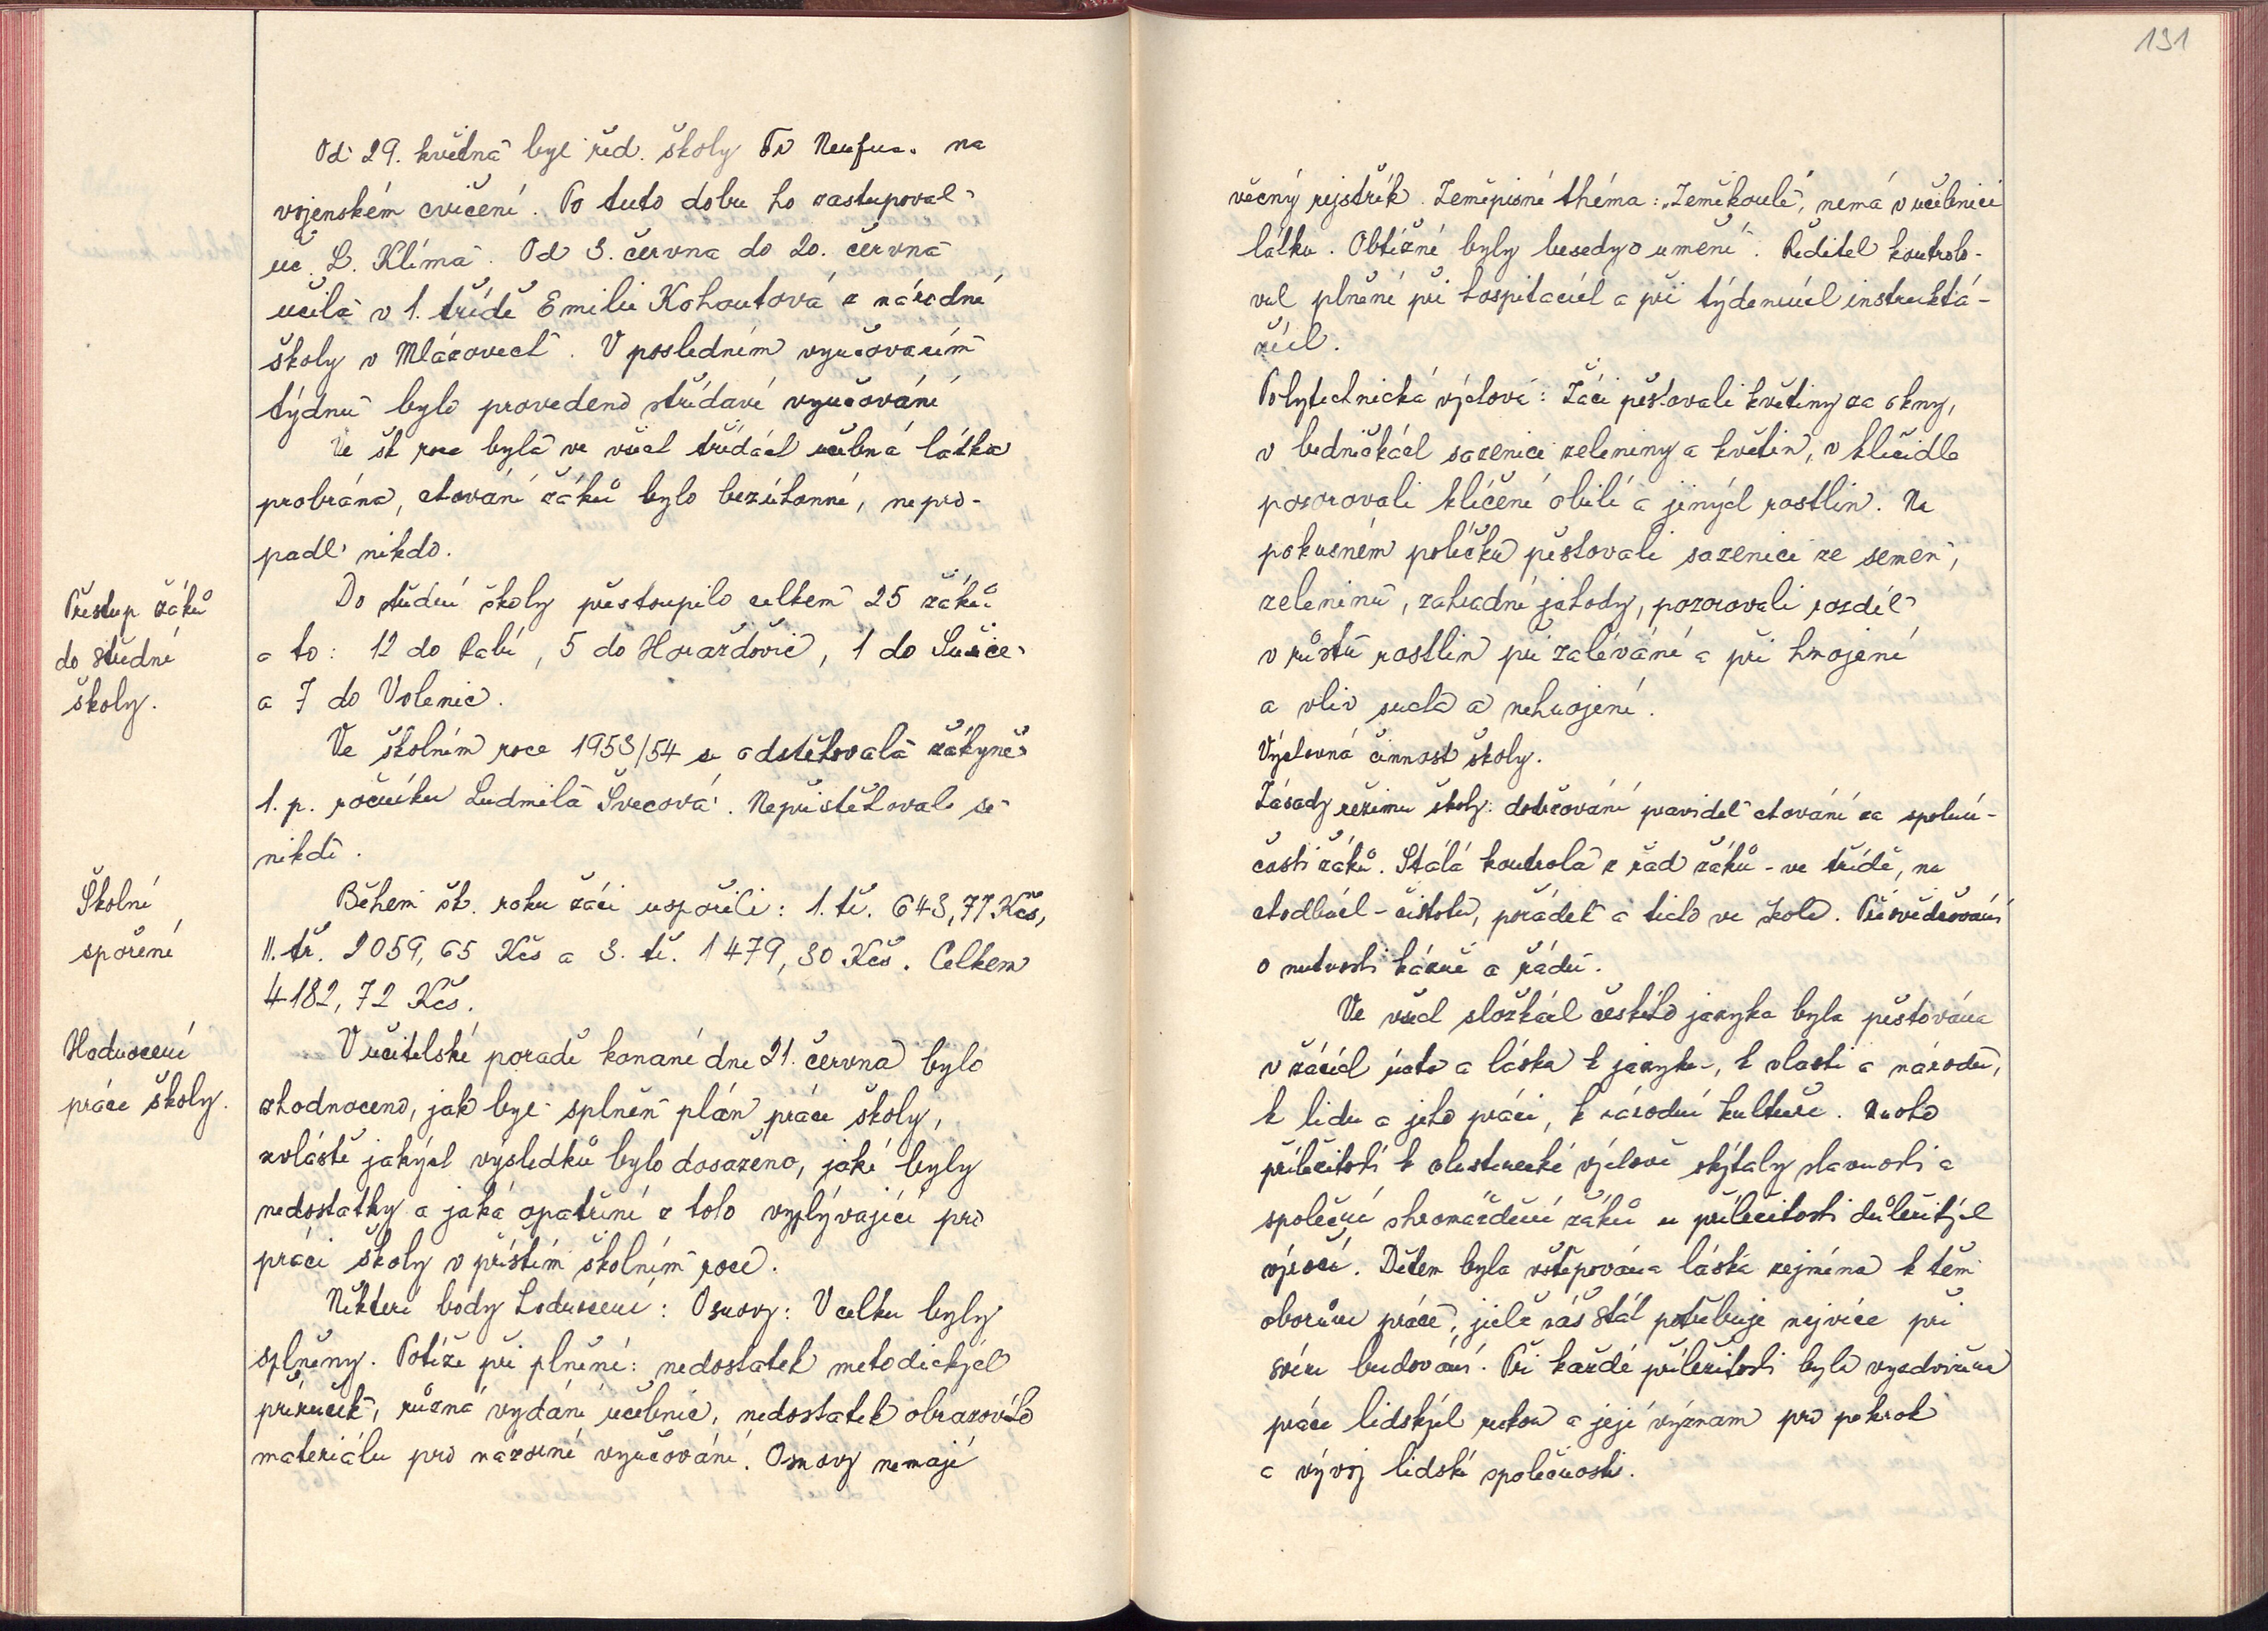 Od 29. května byl řed. školy Fr. na
vojenském cvičení. Po tuto dobu ho zastupoval
uč. L. Klíma. Od 3. června do 20. června
učila v 1. třídě Emilie Kohoutová z národní
školy v Mlázovech. V posledním vyučovacím
týdnu bylo provedeno střídavé vyučování
Ve šk roce byla ve všech třídách učebná látka
probrána, chování žáků bylo bezúhonné, nepro-
padl nikdo.
Přestup žáků
do střední
školy.
Do střední školy přestoupilo celkem 25 žáků
a to: 12 do Rabí, 5 do Horažďovic, 1 do Sušice
a 7 do Volenic.
Ve školním roce 1953/54 se odstěhovala žákyně
1. p. ročníku Ludmila Švecová. Nepřistěhoval se
nikdo.
Školní
spoření
Během šk. roku žáci uspořili: 1. tř. 643,77 Kčs,
II. tř. 2059,65 Kčs a 3. tř. 1479,30 Kčs. Celkem
4182,72 Kčs.
Hodnocení
práce školy.
V učitelské poradě konané dne 21. června bylo
zhodnoceno, jak byl splněn plán práce školy,
zvláště jakých výsledků bylo dosaženo, jaké byly
nedostatky a jaká opatření z toho vyplývající pro
práci školy v příštím školním roce.
Některé body hodnocení: Osnovy: V celku byly
splněny. Potíže při plnění: nedostatek metodických
příruček, různá vydání učebnic, nedostatek obrazového
materiálu pro názorné vyučování. Osnovy nemají
191
věcný rejstřík. Zeměpisné théma: „Zeměkoule", nemá v učebnici
látku. Obtížné byly besedy o umění. Ředitel kontrolo-
val plnění při hospitacích a při týdenních instruktá-
žích.
Polytechnická výchova: Žáci pěstovali květiny za okny,
v bedničkách sazenice zeleniny a květin, v klíčidle
pozorovali klíčení obilí a jiných rostlin. Na
pokusném políčku pěstovali sazenice ze semen,
zeleninu, zahradní jahody, pozorovali rozdíl
v růstu rostlin při zalévání a při hnojení
a vliv sucha a nehnojení.
Výchovná činnost školy.
Zásady režimu školy: dodržování pravidel chování za spoluú-
časti žáků. Stálá kontrola z řad žáků - ve třídě, na
chodbách - čistotu, pořádek a ticho ve škole. Přesvědčování
o nutnosti kázně a řádu.
Ve všech složkách českého jazyka byla pěstována
v žácích úcta a láska k jazyku, k vlasti a národu,
k lidu a jeho práci, k národní kultuře. Mnoho
příležitostí k vlastenecké výchově skýtaly slavnosti a
společná shromáždění žáků u příležitosti důležitých
výročí. Dětem byla vštěpována láska zejména k těm
oborům práce, jichž náš stát potřebuje nejvíce při
svém budování. Při každé příležitosti byla vyzdvižena
práce lidských rukou a její význam pro pokrok
a vývoj lidské společnosti.